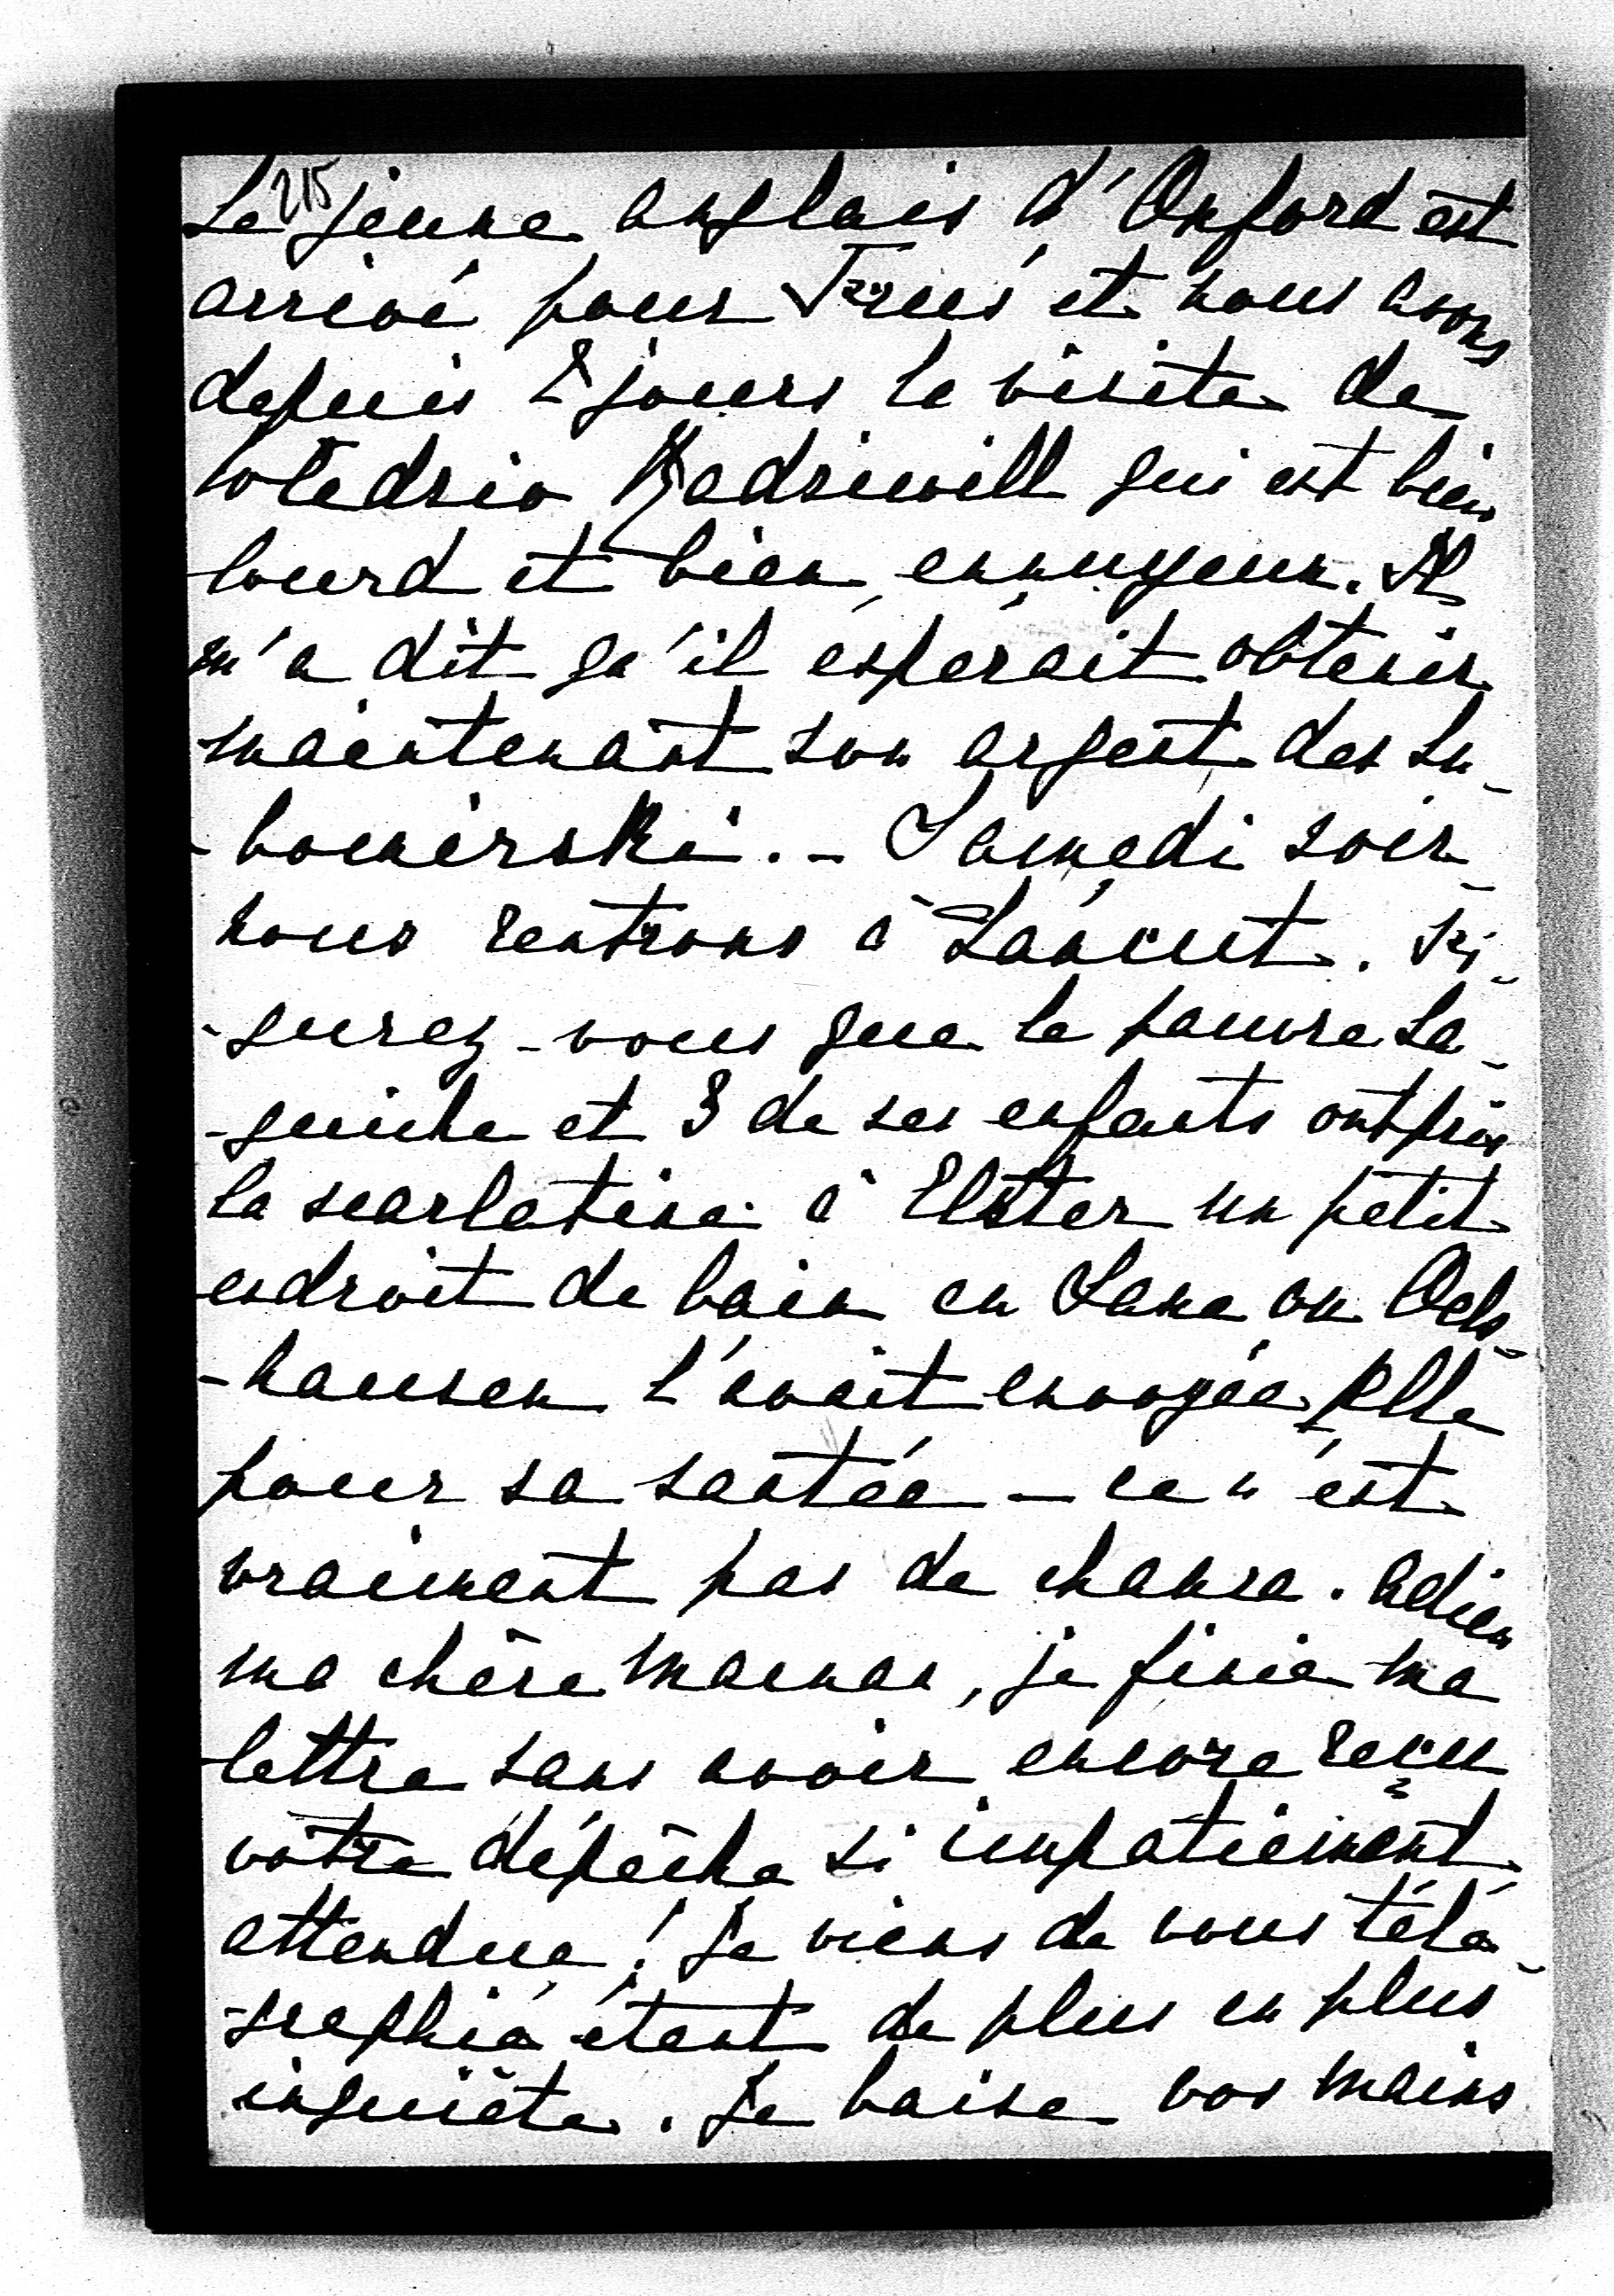 215
Le jeune anglais d'Oxford est
arrivé pour et nous avons
depuis 2 jours la visite de
Władzio Radziwill qui est bien
lourd et bien ennuyeux. Il
m'a dit qu'il espérait obtenir
maintenant son argent des Lu-
-bomirski. - Samedi soir
nous rentrons à Łańcut. Fi-
-gurez-vous que la pauvre La-
-guiche et 3 de ses enfants ont pris
la scarlatine à Elster un petit
endroit de bain en Saxe où Oels-
-hausen l'avait envoyée Elle
pour sa santée - ce n'est
vraiment pas de chance. Adieu
ma chère Maman, je finie ma
lettre sans avoir encore reçu
votre dépêche si impatiemment
attendue! Je viens de vous télé-
-graphié étant de plus en plus
inquiète. Je baise vos mains